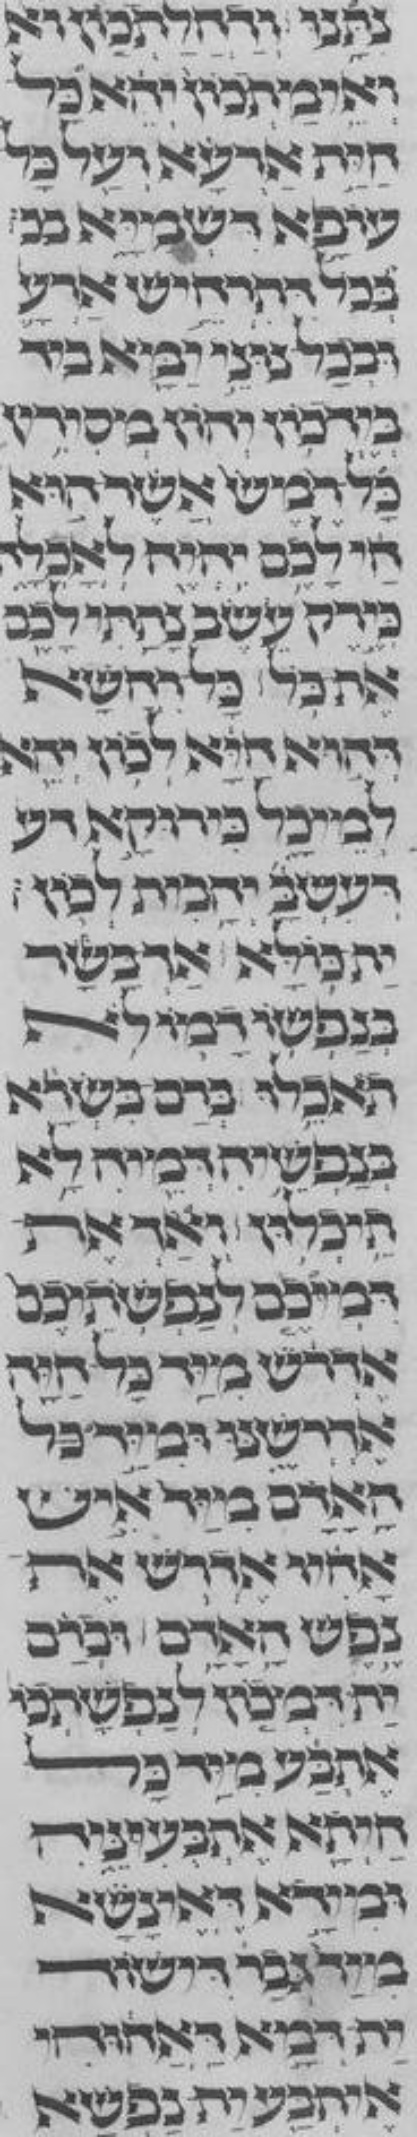 נתנו ודחלתכון וא
ואימתכון יהא כל
חית ארעא ועל כל
עופא דשמיא בכ
בכל דתרחיש ארע
ובכל נוני ימא ביד
בידכון יהון מסירין
כל רמש אשר הוא
חי לכם יהיה לאכלה
כירק עשב נתתי לכם
את כל כל רחשא
דהוא חיא לכון יהא
למיכל כירוקא דע
דעשב יהבית לכון
ית כולא אך בשר
בנפשו דמו לא
תאכלו ברם בשרא
בנפשיה דמיה לא
תיכלון ואך את
דמיכם לנפשתיכם
אדרש מיד כל חיה
אדרשנו ומיד כל
האדם מיד איש
אחיו אדרש את
נפש האדם וברם
ית דמכון לנפשתכו
אתבע מיד כל
חיתא אתבעיניה
ומידא דאינשא
מיד גבר דישוד
ית דמא דאחוהי
איתבע ית נפשא